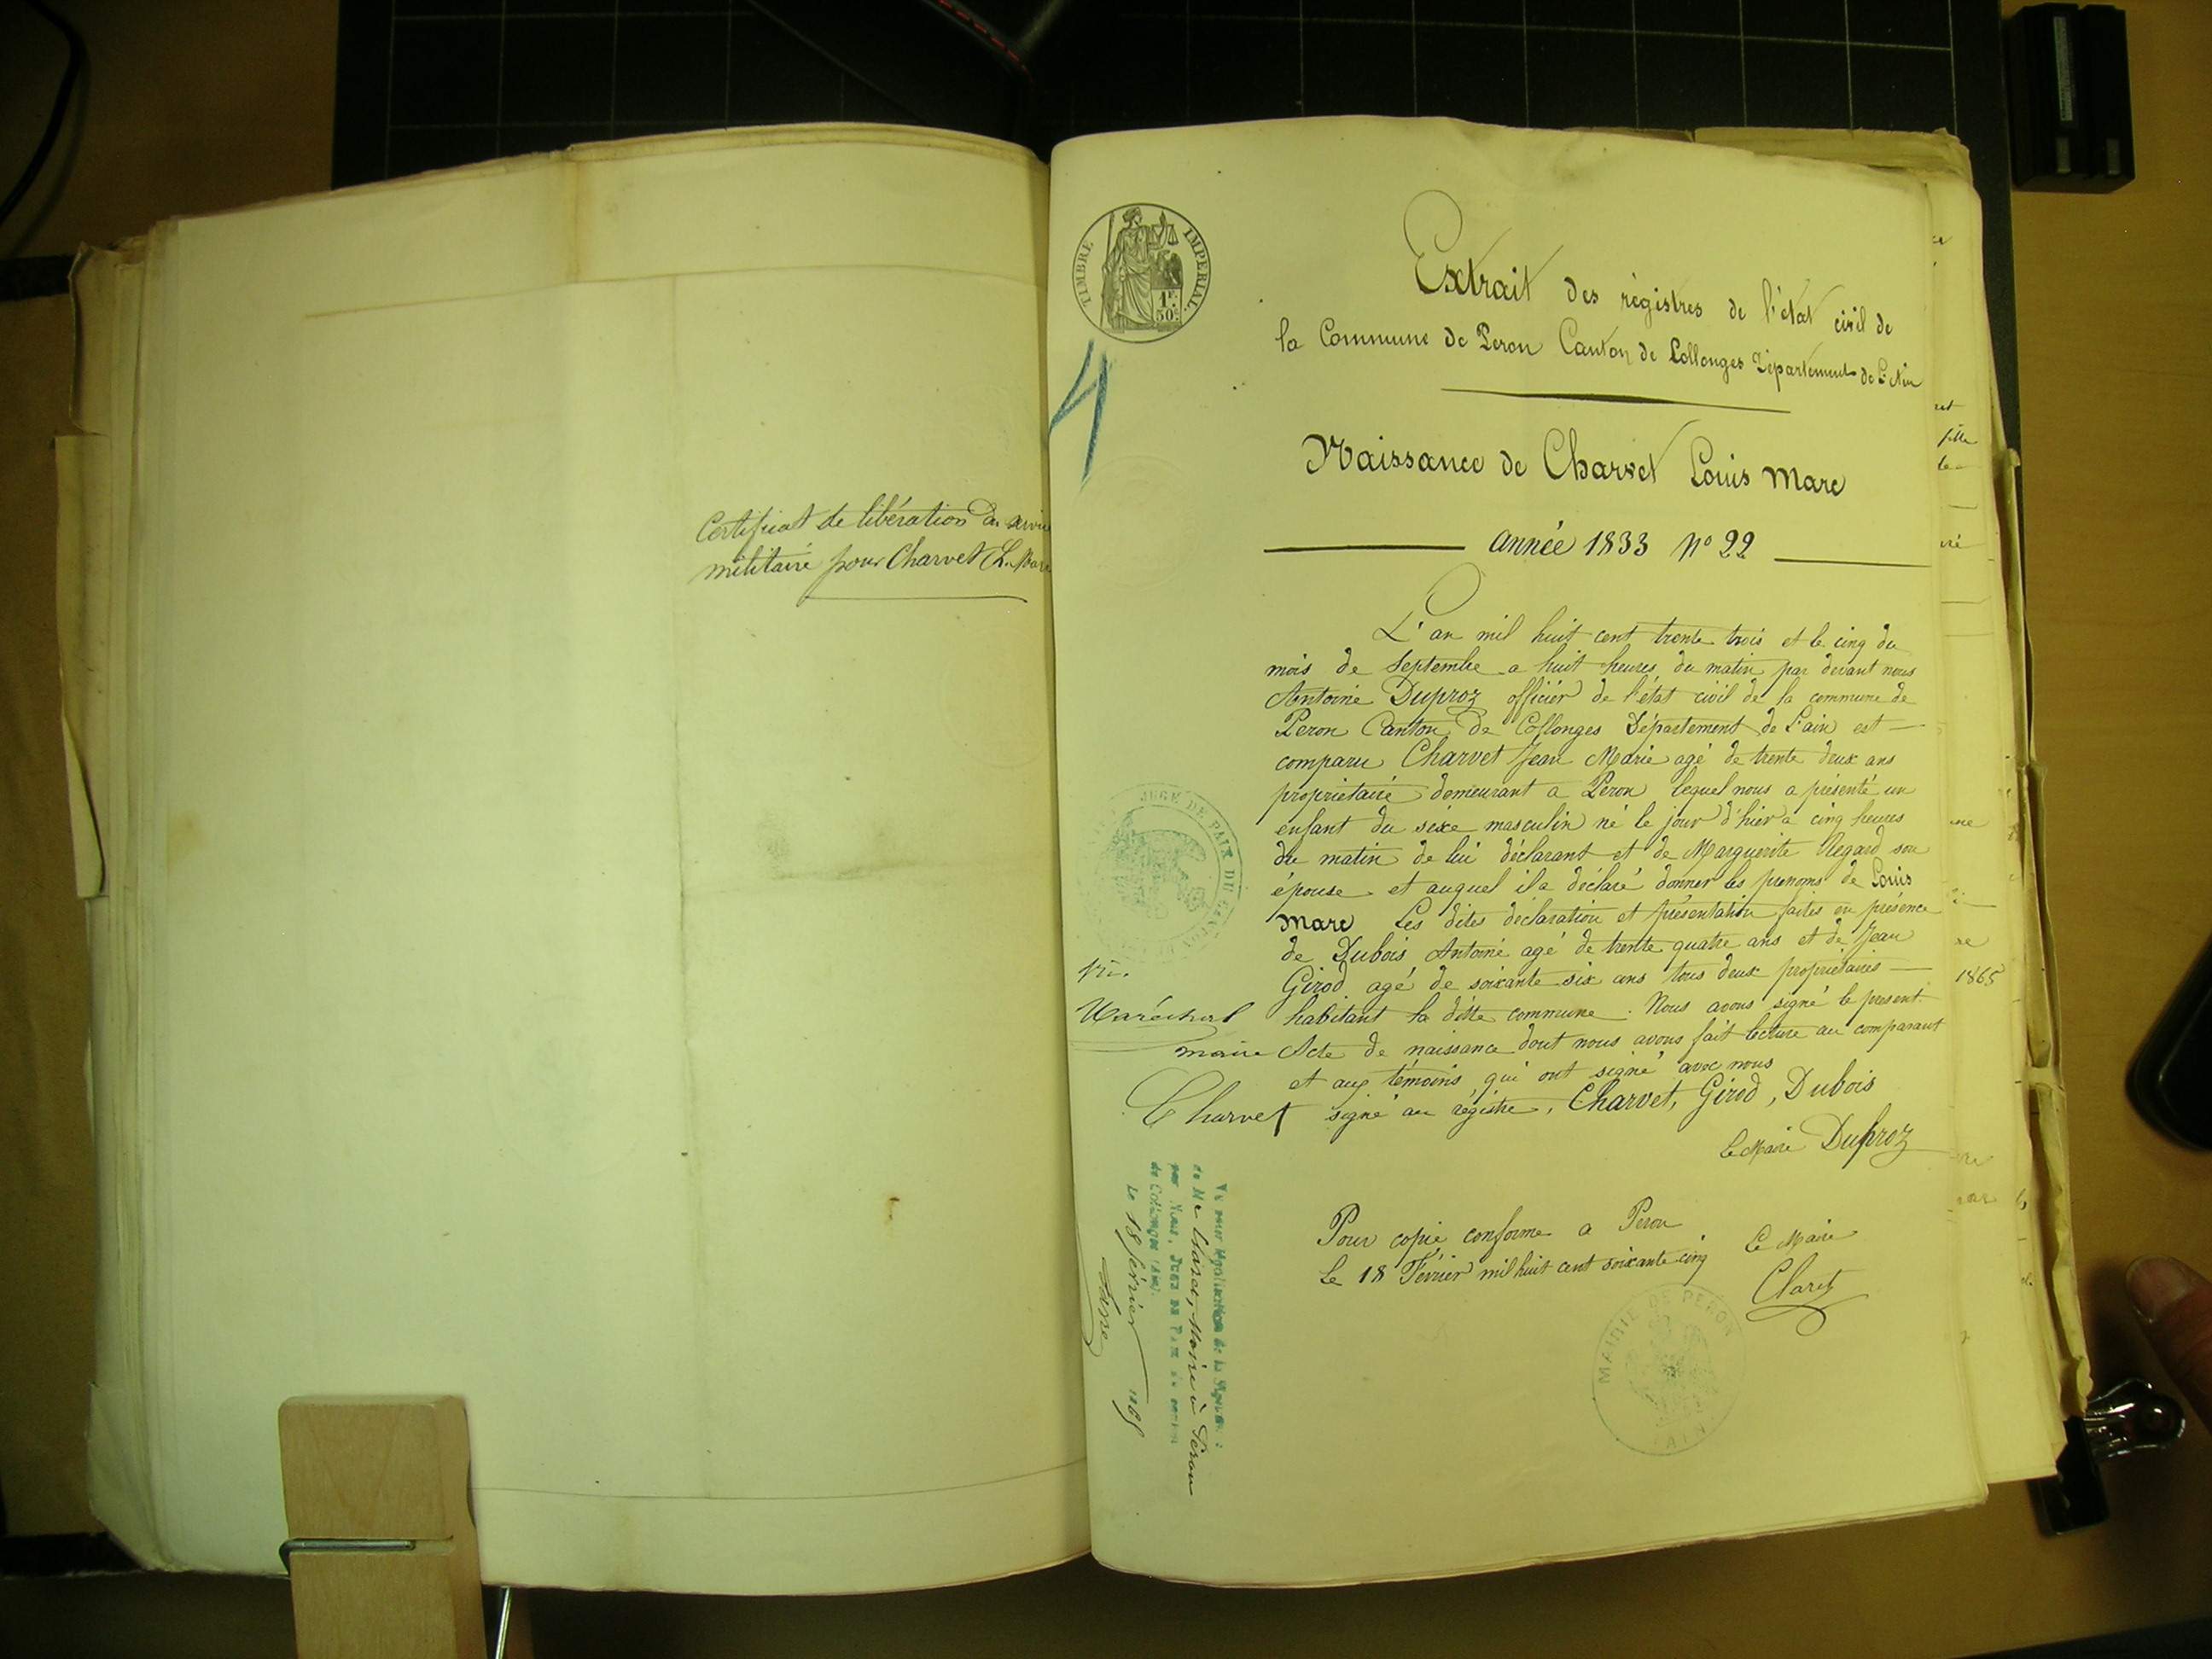 Certificat de libération du servi
militaire pour Charvet L. Marc
TIMBRE IMPERIAL
1F.
50c.
4
Extrait des régistres de l'état civil de
la Commune de Peron Canton de Collonges Département de L'Ain
Naissance de Charvet Louis Marc
année 1833 N° 22
L'an mil huit cent trente trois et le cinq du
mois de Septembre a huit heures du matin par devant nous
Antoine Duproz officier de l'état civil de la commune de
Peron Canton de Collonges Département de L'ain est
comparu Charvet Jean Marie agé de trente deux ans
propriétaire demeurant a Peron lequel nous a présenté un
enfant du sexe masculin né le jour d'hier a cinq heures
du matin de lui déclarant et de Marguerite Regard son
épouse et auquel il a déclaré donner les prenoms de Louis
Marc Les dites déclaration et présentation faites en présence
de Dubois Antoine agé de trente quatre ans et de Jean
Girod agé de soixante six ans tous deux propriétaires
habitant la ditte commune. Nous avons signé le présent
Acte de naissance dont nous avons fait lecture au comparant
et aux témoins qui ont signé avec nous
signé au régistre, Charvet, Girod, Dubois
Le Maire Duproz
JUGE DE PAIX DU CANTON
Vu.
Maréchal
maire
Charvet
Pour copie conforme a Peron
Le 18 Février mil huit cent soixante cinq
Le Maire
Claret
MAIRIE DE PERON
AIN
Vu pour légalisation de la signature
de Mr Claret, Maire à Peron
par Nous, Juge de Paix du canton
de Collonges (Ain).
Le 18 février 1865
1865